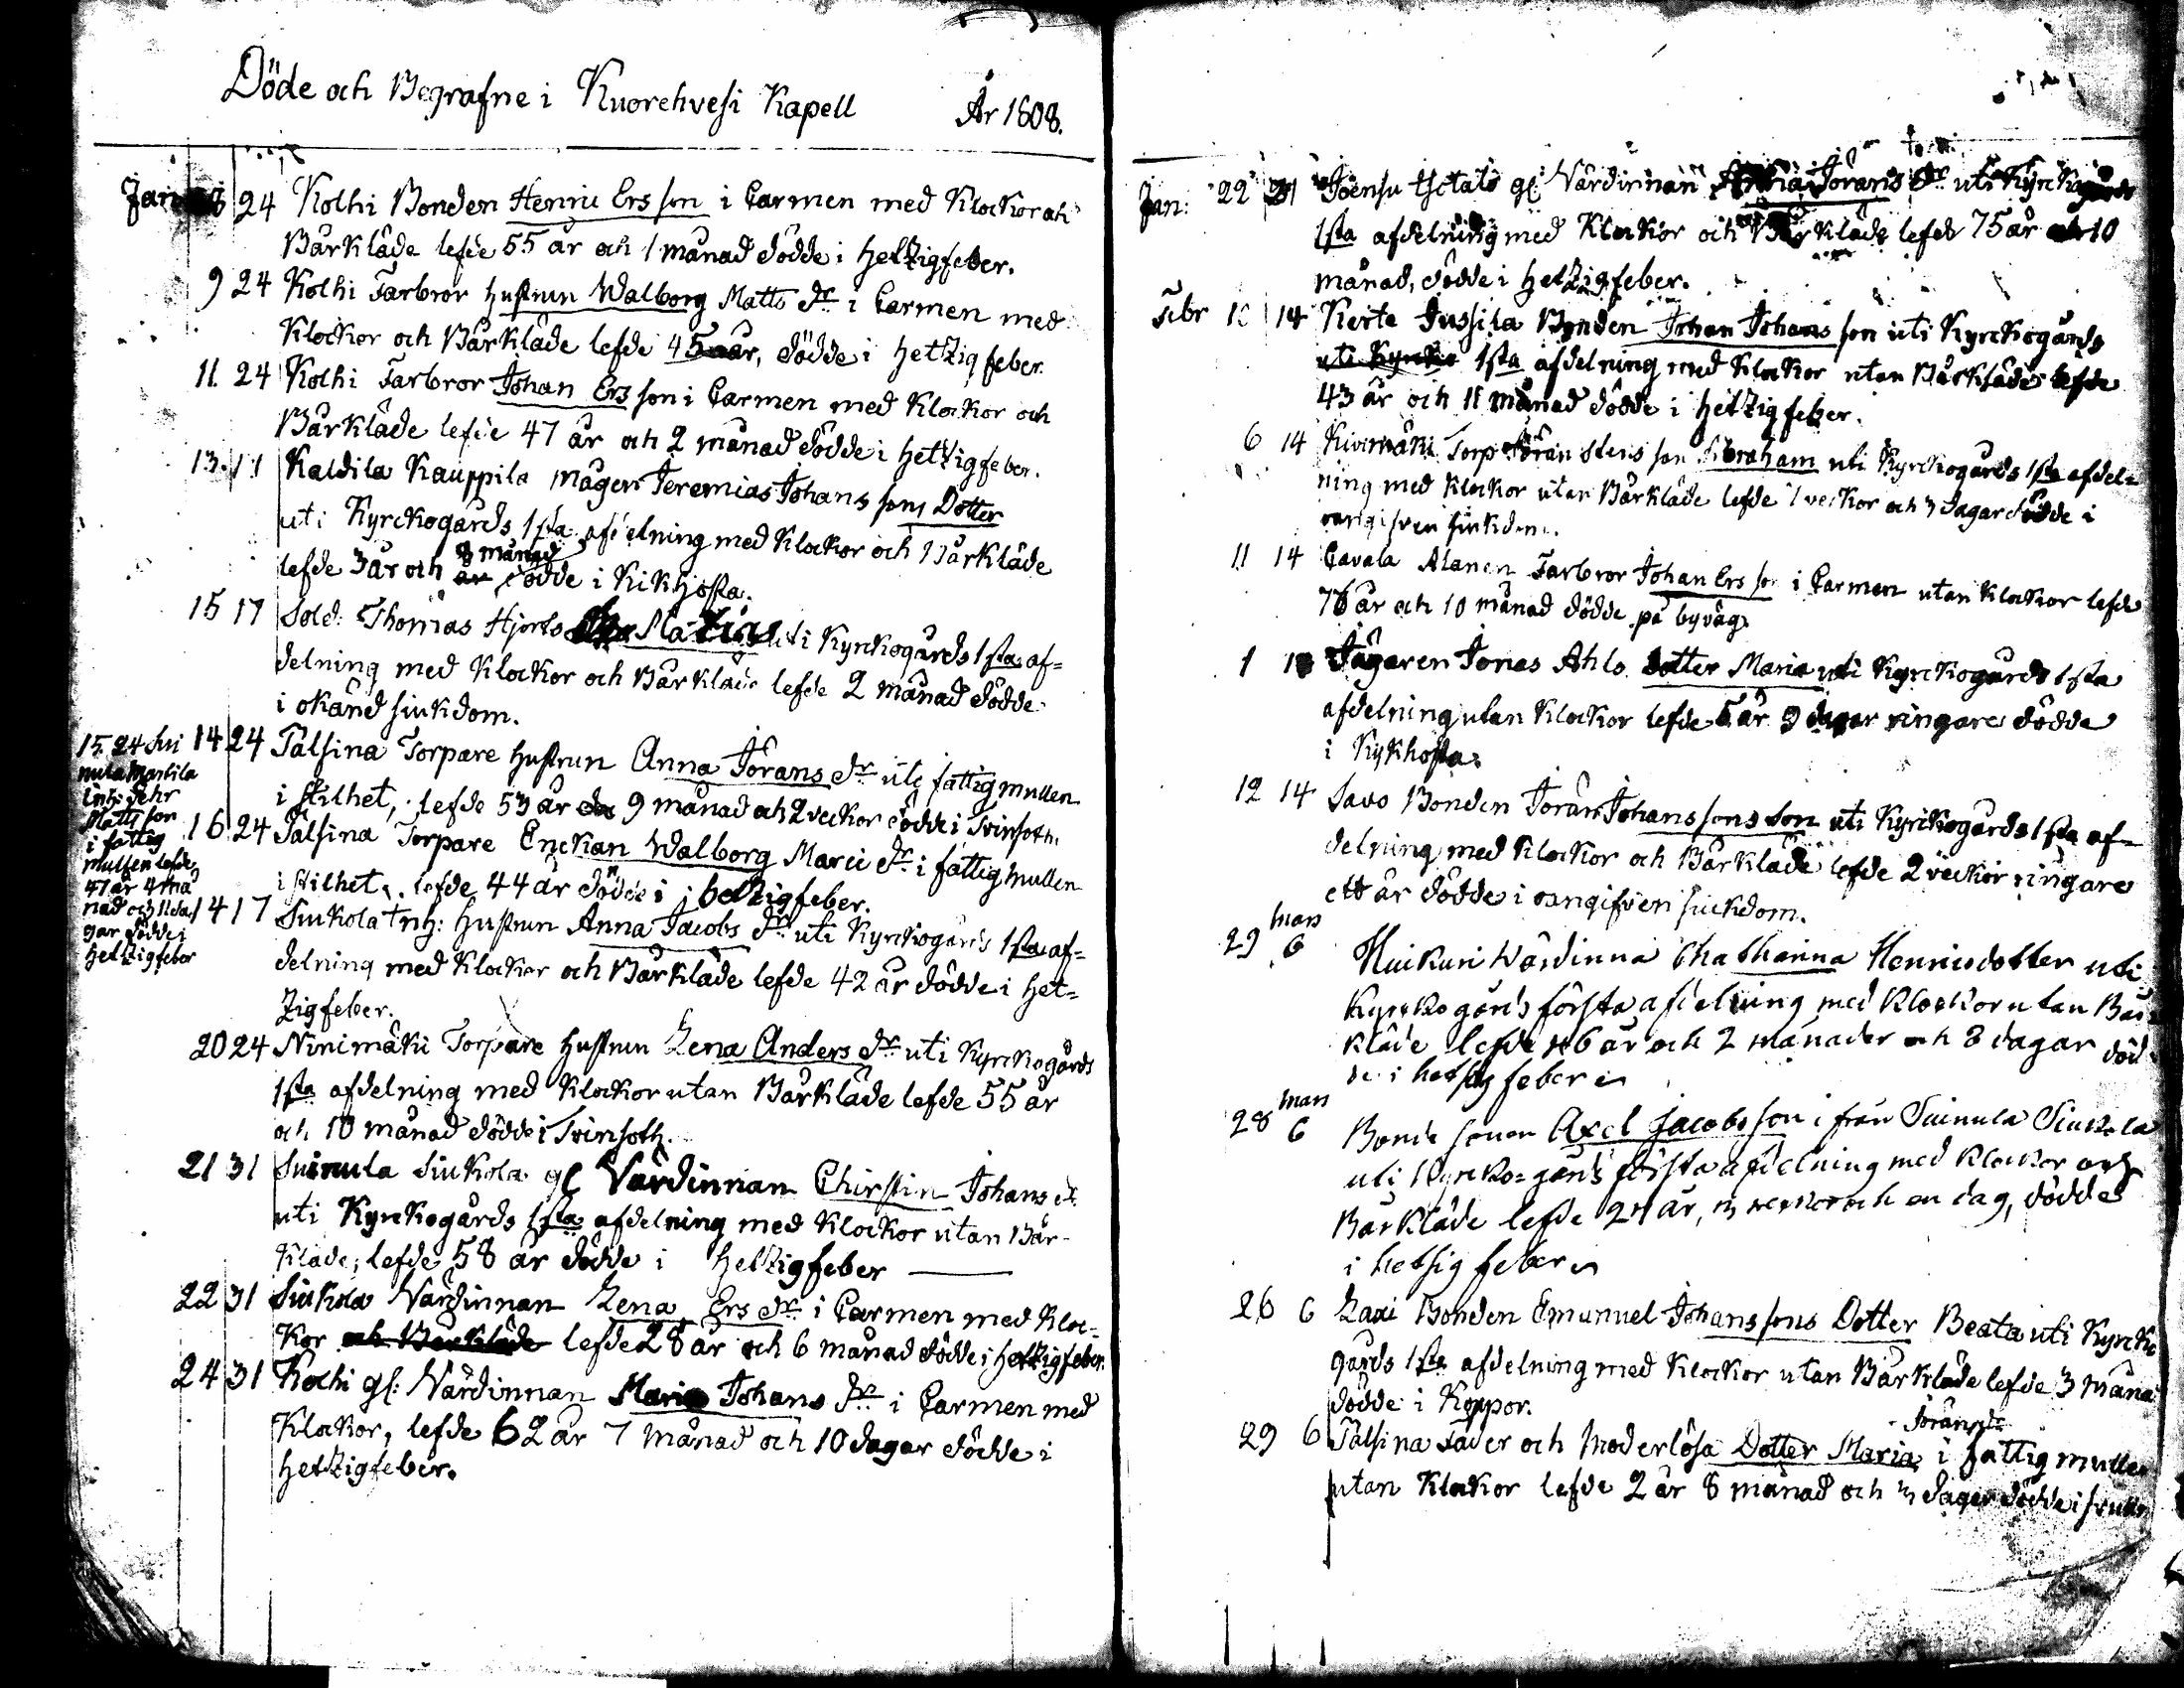 Döde och Begrafne i Kuorehvesi Kapell År 1808.
Jan 8 24 Kolhi Bonden Henric Ers son i Carmen med Klockor och
Bårkläde lefde 55 år och 1 månad dödde i hetzigfeber.
9 24 Kolhi Farbror hustrun Walborg Matts dr i Carmen med
Klockor och Bårkläde lefde 45 år, dödde i hetzigfeber
11 24 Kolhi Farbror Johan Ers son i Carmen med Klockor och
Bårkläde lefde 47 år och 2 månad dödde i hetzigfeber.
13 17 Kaldila Kauppila Mågen Jeremias Johans sons Dotter
uti Kyrckogårds 1sta afdelning med Klockor och Bårkläde
8 månad
lefde 3 år och år dödde i Kikhosta.
15 17 Sold: Thomas Hjorts Matias uti Kyrckogårds 1sta af=
delning med Klockor och Bårkläde lefde 2 månad dödde
i okänd siukdom.
14 24 Talsina Torpare hustrun Anna Jörans dr uti fattigmullen
i stilhet, lefde 53 år 9 månad och 2 veckor dödde i Tvinsoth.
16 24 Talsina Torpare Enckan Walborg Marci dr i fattigmullen
i stilhet, lefde 44 år dödde i hetzigfeber.
15 24 Sui
nula Marttila
Inh: Jehr
Matts son
i fattig
mullen lefde
47 år 4 må
nad och 11 da
gar dödde i
hetzigfeber
14 17 Siukola Inh: hustrun Anna Jacobs dr uti Kyrckogårds 1sta af=
delning med Klockor och Bårkläde lefde 42 år dödde i het=
zigfeber.
20 24 Ninimäki Torpare hustrun Lena Anders dr uti Kyrckogårds
1sta afdelning med Klockor utan Bårkläde lefde 55 år
och 10 månad dödde i Tvinsoth.
21 31 Suinula Siukola gl Värdinnan Chirstin Johans dr
uti Kyrckogårds 1sta afdelning med Klockor utan Bår-
kläde, lefde 58 år dödde i hetzigfeber
22 31 Siukola Värdinnan Lena Ers dr i Carmen med Kloc-
kor och Bårkläde lefde 28 år och 6 månad dödde i hetzigfeber.
24 31 Kolhi gl: Värdinnan Maria Johans dr i Carmen med
Klockor, lefde 62 år 7 månad och 10 dagar dödde i
hetzigfeber.
Jan: 22 31 Joensu gl: Värdinnan Anna Jörans dr uti Kyrckogårds
1sta afdelning med Klockor och Bårkläde lefde 75 år och 10
månad, dödde i hetzigfeber.
Febr 14 Kerte Jussila Bonden Johan Johans son uti Kyrckogårds
uti Kyrcko 1sta afdelning med Klockor utan Bårkläde lefde
43 år och 11 månad dödde i hetzigfeber.
6 14 Kivimäki Torp Jöran Stens son Abraham uti Kyrckogårds 1sta afdel=
ning med Klockor utan Bårkläde lefde veckor och 3 dagar dödde i
oangifven siukdom.
11 14 Pavala Alanen Farbror Johan Ers son i Carmen utan Klockor lefde
76 år och 10 månad dödde på byväg
1 Jägaren Jonas Ahls dotter Maria uti Kyrckogårds 1sta
afdelning utan Klockor lefde 5 år 9 dagar ringare dödde
i Kykhosta.
12 14 Savo Bonden Jöran Johans sons Son uti Kyrckogårds 1sta af=
delning med Klockor och Bårkläde lefde 2 veckor ringare
ett år dödde i oangifven siuckdom.
29 mars 6 Huikuri Wärdinna Chatharina Henricsdotter uti
Kyrckogårds första afdelning med Klockor utan Bår
kläde lefde 6 år och 2 månader och 8 dagar död
de i hetsig feber
28 mars 6 Bonde sonen Axel Jacobs son i från Suinula Siukola
uti Kyrcko=gårds första afdelning med Klockor och
Bårkläde lefde 24 år, 3 veckor och en dag, dödde
i hetsig feber
26 6 Laxi Bonden Emanuel Johans sons Dotter Beata uti Kyrcko
gårds 1sta afdelning med Klockor utan Bårkläde lefde 3 måna
dödde i Koppor.
Jöransdr
29 6 Talsina Fader och Moderlösa Dotter Maria i fattigmullen
utan Klockor lefde 2 år 8 månad och 3 dagar dödde i